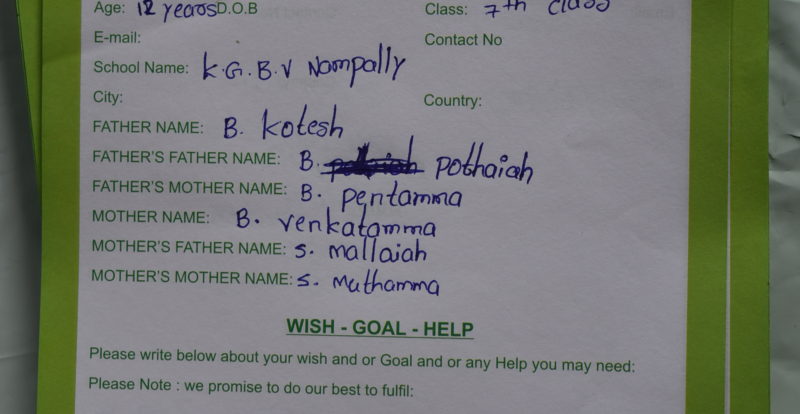 Age: 12 years D.O.B Class: 7th class
E-mail: Contact No
School Name: K.G.B.V Nampally
City: Country:
FATHER NAME: B. kotesh
FATHER'S FATHER NAME: B. pothaiah
FATHER'S MOTHER NAME: B. pentamma
MOTHER NAME: B. venkatamma
MOTHER'S FATHER NAME: S. mallaiah
MOTHER'S MOTHER NAME: S. Muthamma
WISH - GOAL - HELP
Please write below about your wish and or Goal and or any Help you may need:
Please Note : we promise to do our best to fulfil: